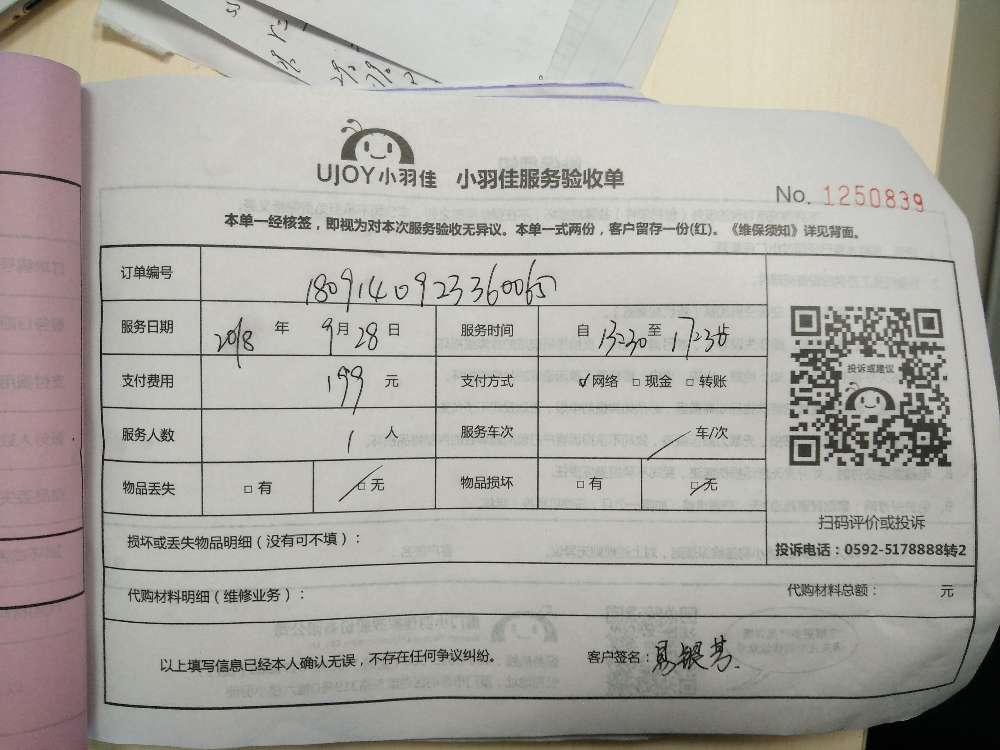 UJOY小羽佳 小羽佳服务验收单
No. 1250839
本单一经核签，即视为对本次服务验收无异议。本单一式两份，客户留存一份(红)。《维保须知》详见背面。
订单编号 1809140923360065
服务日期 2018 年 9月 28 日 服务时间 自 13:30 至 17:30 止
支付费用 199 元 支付方式 ☑网络 □现金 □转账
服务人数 1 人 服务车次 / 车/次
物品丢失 □有 ☑无 物品损坏 □有 ☑无
投诉或建议
扫码评价或投诉
投诉电话：0592-5178888转2
损坏或丢失物品明细（没有可不填）：
代购材料明细（维修业务）：
代购材料总额： 元
以上填写信息已经本人确认无误，不存在任何争议纠纷。 客户签名：